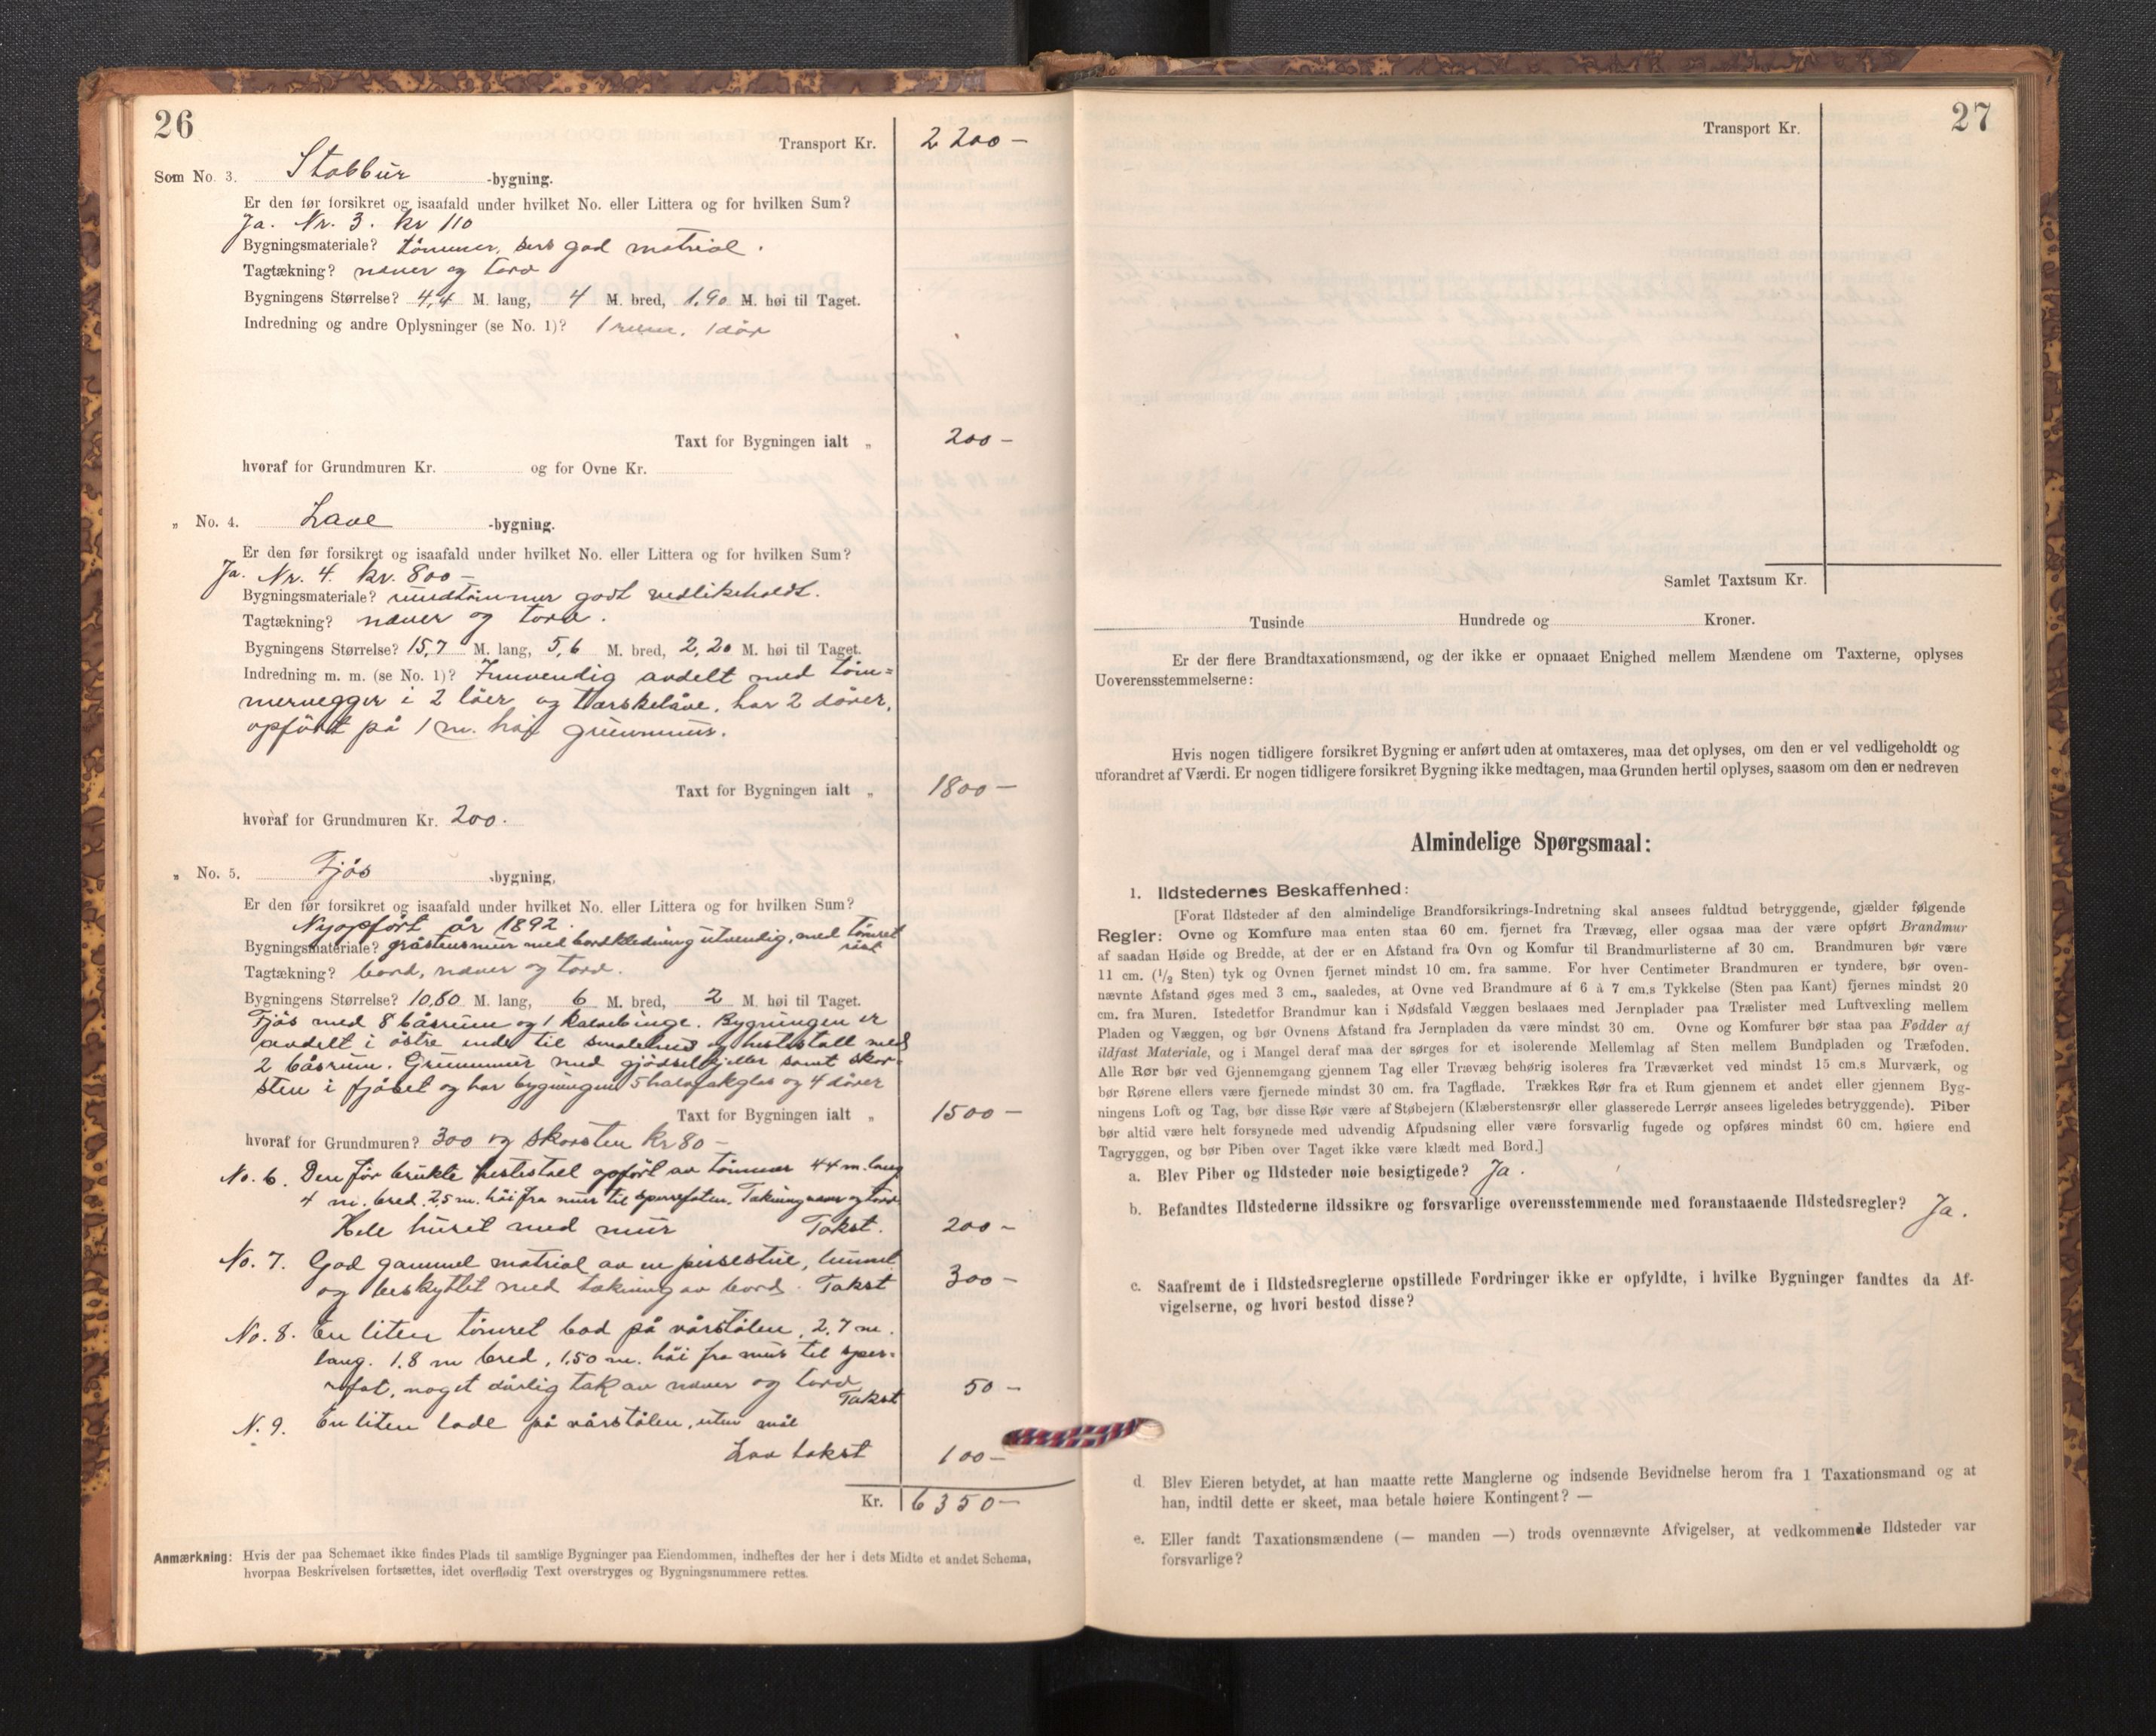 26
Transport Kr. 2200 –
Som No. 3. Stabbur -bygning.
Er den før forsikret og isaafald under hvilket No. eller Littera og for hvilken Sum?
Ja. Nr. 3. kr 110
Bygningsmateriale? tömmer, god matrial.
Tagtækning? næver og torv
Bygningens Størrelse? 4,4 M. lang, 4 M. bred, 1,90 M. høi til Taget.
Indredning og andre Oplysninger (se No. 1)? 1 rum, 1 dör
Taxt for Bygningen ialt „ 200 –
hvoraf for Grundmuren Kr. og for Ovne Kr.
„ No. 4. Lave -bygning.
Er den før forsikret og isaafald under hvilket No. eller Littera og for hvilken Sum?
Ja. Nr. 4. kr. 800 –
Bygningsmateriale? rundtömmer godt vedlikeholdt.
Tagtækning? næver og torv.
Bygningens Størrelse? 15,7 M. lang, 5,6 M. bred, 2,20 M. høi til Taget.
Indredning m. m. (se No. 1)? Innvendig avdelt med töm=
mervegger i 2 löer og tærskelåve, har 2 dörer,
opfört på 1 m. höi grunnmur.
Taxt for Bygningen ialt „ 1800 –
hvoraf for Grundmuren Kr. 200.
„ No. 5. Fjös -bygning,
Er den før forsikret og isaafald under hvilket No. eller Littera og for hvilken Sum?
Nyopfört år 1892.
Bygningsmateriale? gråstensmur med bordkledning utvendig, med tömret
röst
Tagtækning? bord, næver og torv.
Bygningens Størrelse? 10,80 M. lang, 6 M. bred, 2 M. høi til Taget.
Fjös med 8 båsrum og 1 kalvebinge. Bygningen er
avdelt i östre ende til smalehus og hestestall med
2 båsrum. Grunnmur med gjödselkjeller samt skor-
sten i fjöset og har bygningen 5 glas og 4 dörer
Taxt for Bygningen ialt „ 1500 –
hvoraf for Grundmuren? 300 og skorsten kr 80 –
No. 6. Den för brukte hestestall opfört av tömmer 4,4 m. lang
4 m. bred. 2,5 m. höi fra mur til sperrefoten. Tækning næver og torv.
Hele huset med mur Takst. 200 –
No. 7. God gammel matrial av en peisestue,
og beskyttet med tækning av bord. Takst 300 –
No. 8. En liten tömret bod på vårstölen, 2,7 m.
lang. 1,8 m bred, 1,50 m. höi fra mur til sper-
refot, noget dårlig tak av næver og torv
Takst 50 –
N. 9. En liten lade på vårstölen, uten mål
Lav takst 100 –
Kr. 6350 –
Anmærkning: Hvis der paa Schemaet ikke findes Plads til samtlige Bygninger paa Eiendommen, indheftes der her i dets Midte et andet Schema,
hvorpaa Beskrivelsen fortsættes, idet overflødig Text overstryges og Bygningsnummere rettes.
27
Transport Kr.
Samlet Taxtsum Kr.
Tusinde Hundrede og Kroner.
Er der flere Brandtaxationsmænd, og der ikke er opnaaet Enighed mellem Mændene om Taxterne, oplyses
Uoverensstemmelserne:
Hvis nogen tidligere forsikret Bygning er anført uden at omtaxeres, maa det oplyses, om den er vel vedligeholdt og
uforandret af Værdi. Er nogen tidligere forsikret Bygning ikke medtagen, maa Grunden hertil oplyses, saasom om den er nedreven
Almindelige Spørgsmaal:
1. Ildstedernes Beskaffenhed:
[Forat Ildsteder af den almindelige Brandforsikrings-Indretning skal ansees fuldtud betryggende, gjælder følgende
Regler: Ovne og Komfure maa enten staa 60 cm. fjernet fra Trævæg, eller ogsaa maa der være opført Brandmur
af saadan Høide og Bredde, at der er en Afstand fra Ovn og Komfur til Brandmurlisterne af 30 cm. Brandmuren bør være
11 cm. (1/2 Sten) tyk og Ovnen fjernet mindst 10 cm. fra samme. For hver Centimeter Brandmuren er tyndere, bør oven-
nævnte Afstand øges med 3 cm., saaledes, at Ovne ved Brandmure af 6 à 7 cm.s Tykkelse (Sten paa Kant) fjernes mindst 20
cm. fra Muren. Istedetfor Brandmur kan i Nødsfald Væggen beslaaes med Jernplader paa Trælister med Luftvexling mellem
Pladen og Væggen, og bør Ovnens Afstand fra Jernpladen da være mindst 30 cm. Ovne og Komfurer bør staa paa Fødder af
ildfast Materiale, og i Mangel deraf maa der sørges for et isolerende Mellemlag af Sten mellem Bundpladen og Træfoden.
Alle Rør bør ved Gjennemgang gjennem Tag eller Trævæg behørig isoleres fra Træværket ved mindst 15 cm.s Murværk, og
bør Rørene ellers være fjernede mindst 30 cm. fra Tagflade. Trækkes Rør fra et Rum gjennem et andet eller gjennem Byg-
ningens Loft og Tag, bør disse Rør være af Støbejern (Klæberstensrør eller glasserede Lerrør ansees ligeledes betryggende). Piber
bør altid være helt forsynede med udvendig Afpudsning eller være forsvarlig fugede og opføres mindst 60 cm. høiere end
Tagryggen, og bør Piben over Taget ikke være klædt med Bord.]
a. Blev Piber og Ildsteder nøie besigtigede? Ja.
b. Befandtes Ildstederne ildssikre og forsvarlige overensstemmende med foranstaaende Ildstedsregler? Ja.
c. Saafremt de i Ildstedsreglerne opstillede Fordringer ikke er opfyldte, i hvilke Bygninger fandtes da Af-
vigelserne, og hvori bestod disse?
d. Blev Eieren betydet, at han maatte rette Manglerne og indsende Bevidnelse herom fra 1 Taxationsmand og at
han, indtil dette er skeet, maa betale høiere Kontingent? —
e. Eller fandt Taxationsmændene (— manden —) trods ovennævnte Afvigelser, at vedkommende Ildsteder var
forsvarlige?